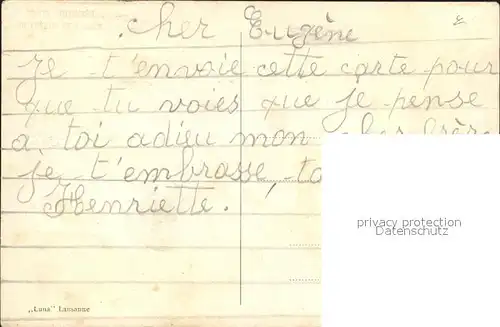 cher Eugène
Je t'envoie cette carte pour
que tu voies que je pense
a toi adieu mon cher frère
je t'embrasse, ta
Henriette.
privacy protection
Datenschutz
„Luna" Lausanne